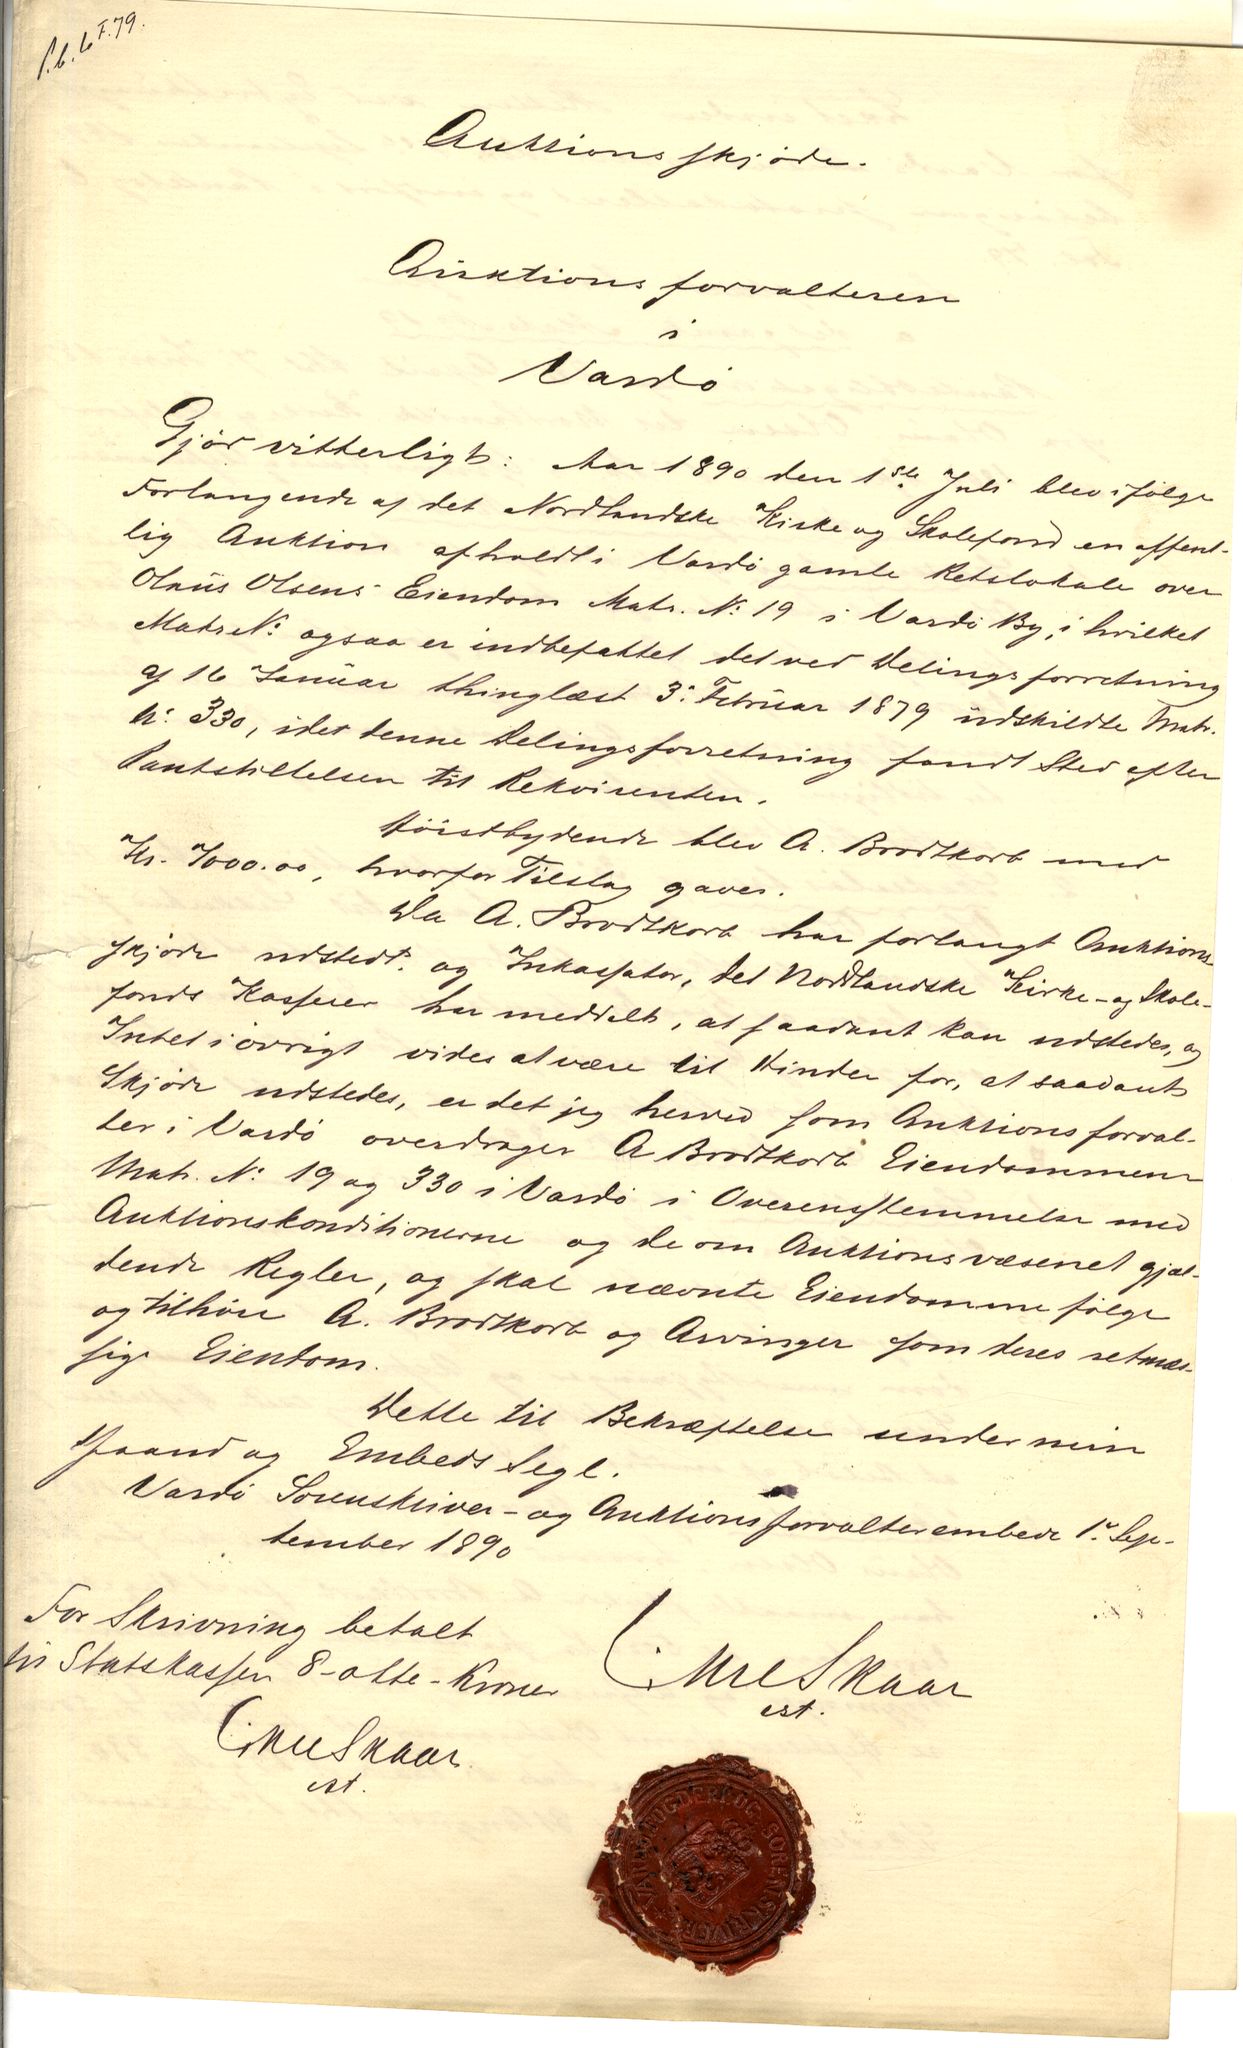 P.b. 6 F. 79.
Auktionsskjøde.
Auktionsforvalteren
i
Vardö
Gjör vitterligt: Aar 1890 den 1ste Juli blev ifölge
Forlangende af det Nordlandske Kirke og Skolefond en offent-
lig Auktion afholdt i Vardö gamle Retslokale over
Olaüs Olsens Eiendom Matr. No 19 i Vardö By, i hvilket
Matr No ogsaa er indbefattet det ved Delingsforretning
af 16 Janüar thinglæst 3. Februar 1879 üdskildte Matr.
No. 330, idet denne Delingsforretning fandt Sted efter
Pantstillelsen til Rekvirenten.
Höistbydende blev A. Brodtkorb med
Kr. 7000.00, hvorfor Tilslag gaves.
Da A. Brodtkorb har forlangt Auktions
skjöde udstedt og Inkassator, det Nordlandske Kirke- og Skole-
fonds Kasserer har meddelt, at saadant kan udstedes, og
Intet i övrigt vides at være til Hinder for, at saadant
Skjöde udstedes, er det jeg herved som Auktionsforval-
ter i Vardö overdrager A Brodtkorb Eiendommene
Matr. No 19 og 330 i Vardö i Overensstemmelse med
Auktionskonditionerne og de om Auktionsvæsenet gjæl-
dende Regler, og skal nævnte Eiendomme følge
og tilhöre A. Brodtkorb og Arvinger som deres retmæs-
sige Eiendom.
Dette til Bekræftelse under min
Haand og Embeds Segl.
Vardö Sorenskriver- og Auktionsforvalterembede 1. Sep-
tember 1890
For Skrivning betalt
til Statskassen 8-otte-Kroner
Skaar
cst.
Skaar
cst.
OG SORENSKRIVER